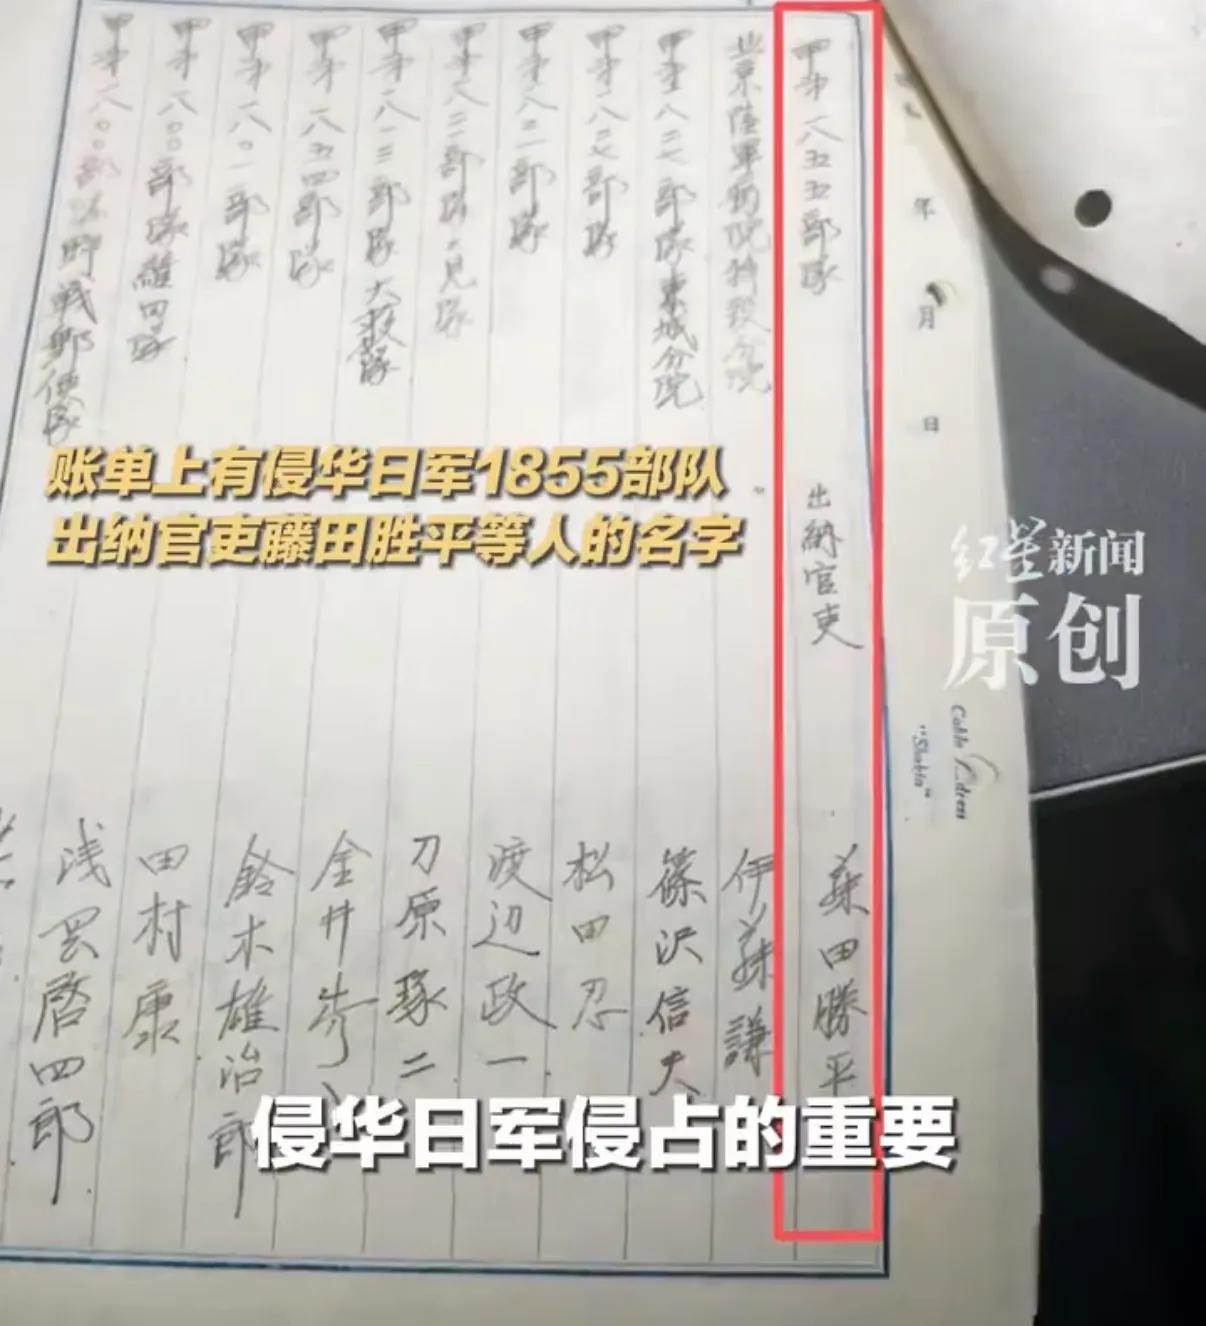 甲第一八五五部隊 出納官吏 藤田勝平
北京陸軍病院 分院 伊藤謙
甲第一八二七部隊東城分院 篠沢信夫
甲第一八二七部隊 松田忍
甲第一八二一部隊 渡辺政一
甲第一八二一部隊 見隊 刀原琢二
甲第一八一三部隊 隊 金井
甲第一八五四部隊 鈴木雄治郎
甲第一八〇一部隊 田村康
甲第一八〇〇部隊 田隊 浅 啓四郎
甲第一八〇〇部隊野戦郵便隊
年 月 日
账单上有侵华日军1855部队
出纳官吏藤田胜平等人的名字
红星新闻
原创
Cable Address
"Shokin"
侵华日军侵占的重要